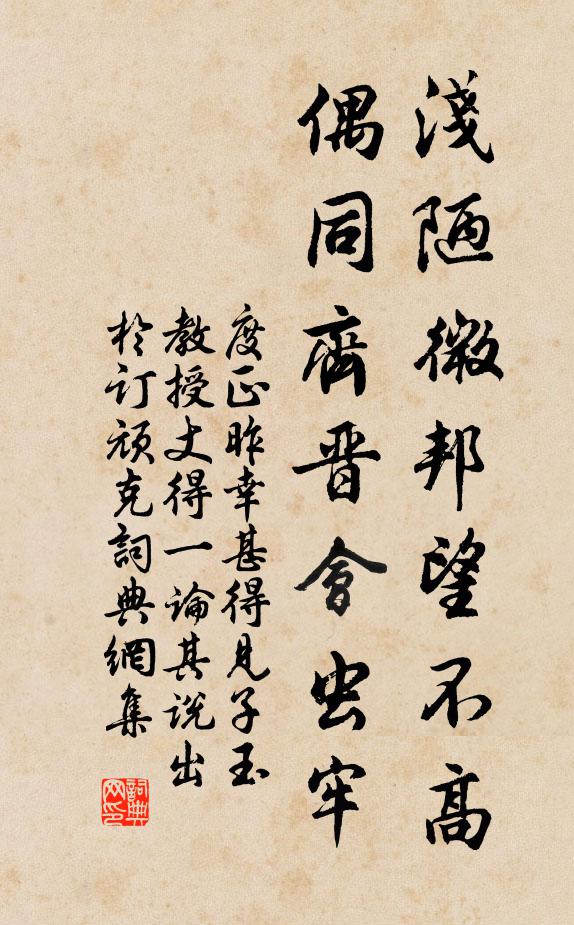 淺陋微邦望不高
偶同齊晋會虫牢
度正昨幸甚得見子玉
教授丈得一論其説出
於订顽克詞典網集
詞典网印